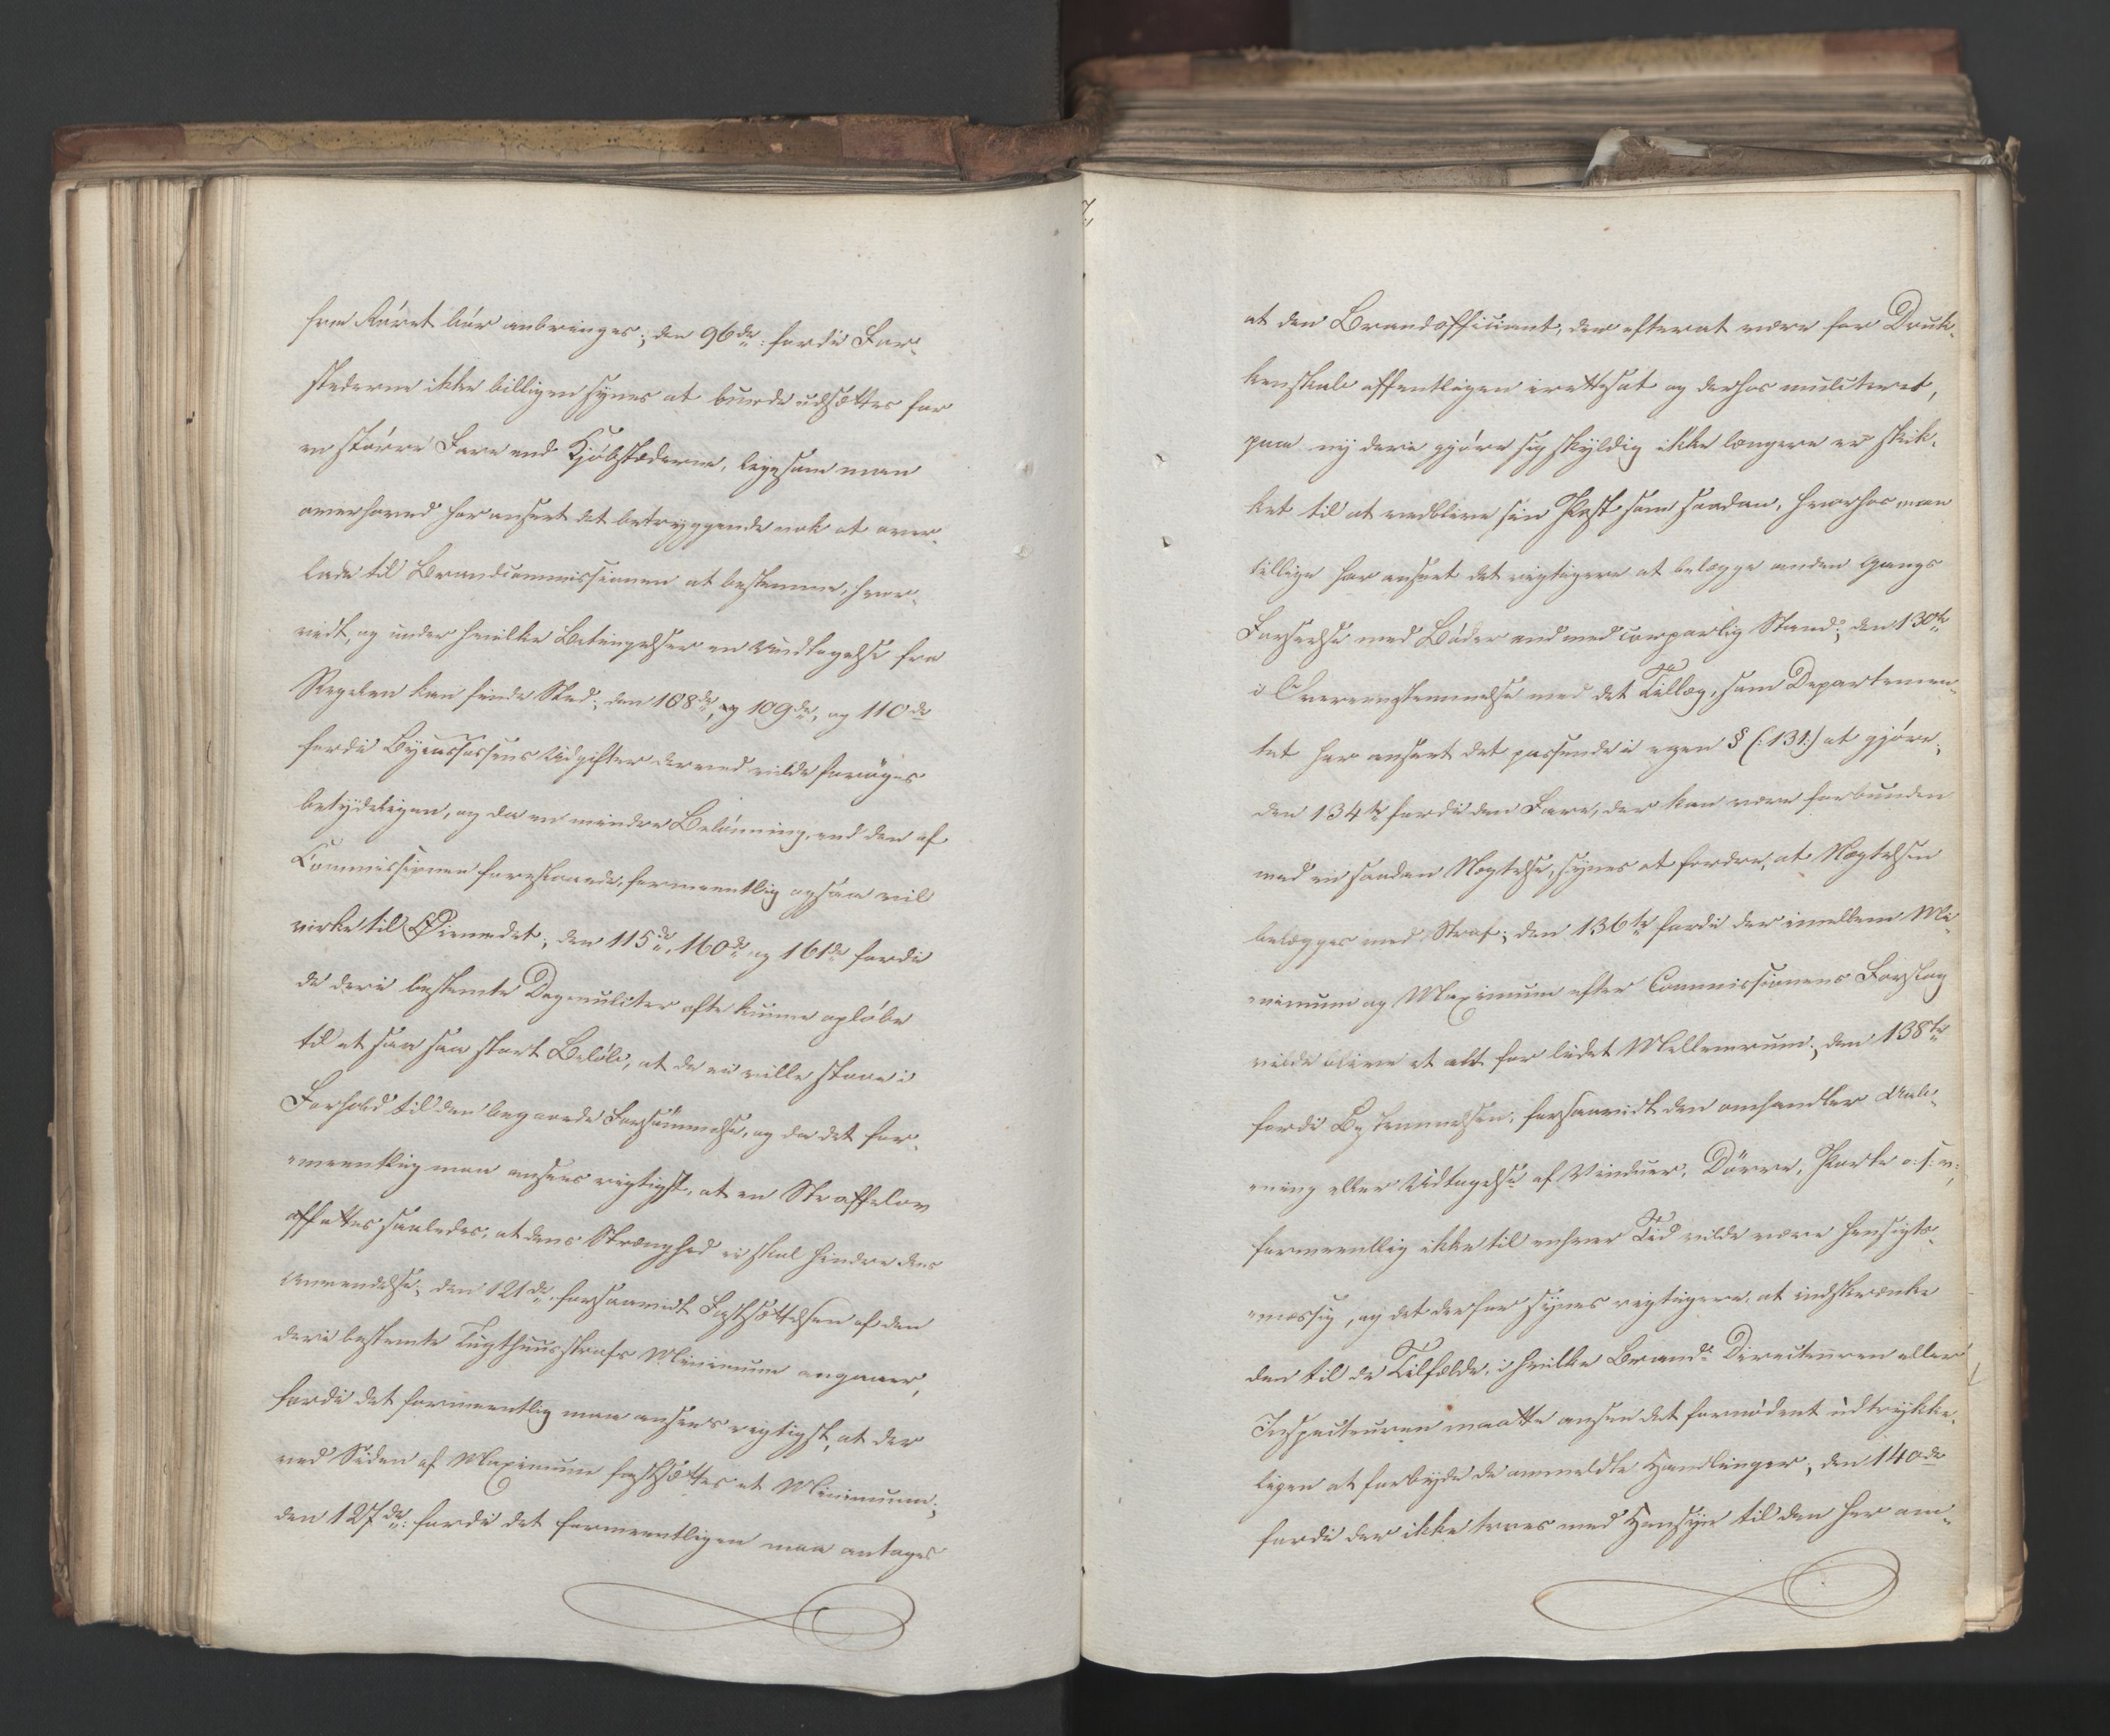 fra Røret bør anbringes; den 96de: fordi For-
stæderne ikke billigen synes at burde udsættes for
en større Fare end Kjøbstæderne, ligesom man
overhoved har anseet det betryggende nok at over-
lade til Brandcommissionen at bestemme, hvor-
vidt, og under hvilke Betingelser en Undtagelse fra
Regelen kan finde Sted; den 108de, og 109de, og 110de
fordi Bycassens Udgifter derved vilde forøges
betydeligen, og da en mindre Belønning, end den af
Commissionen foreslaaede, formeentlig ogsaa vil
virke til Øiemedet; den 115de, 160de og 161de fordi
de deri bestemte Dagmulcter ofte kunne opløbe
til et saa stort Beløb, at de ei ville staae i
Forhold til den begaaede Forsømmelse, og da det for-
meentlig maa ansees rigtigst, at en Straffelov
affattes saaledes, at dens Strænghed ei skal hindre dens
Anvendelse; den 121de, forsaavidt Fastsættelsen af den
deri bestemte Tugthuusstrafs Minimum angaaer,
fordi det formeentlig maa ansees rigtigst, at der
ved Siden af Maximum fastsættes et Minimum;
den 127de: fordi det formeentligen maa antages
at den Brandofficiant, der efterat være for Druk-
kenskab offentligen irettesat og derhos mulcteret,
paa ny deri gjør sig skyldig ikke længere er skik-
ket til at vedblive sin Post som saadan, hvorhos man
tillige har anseet det rigtigere at belægge anden Gangs
Forseelse med Bøder end med corporlig Straf; den 130te
i Overeensstemmelse med det Tillæg, som Departemen-
tet har anseet det passende i egen § (:131:) at gjøre;
den 134te fordi den Fare, der kan være forbunden
med en saadan Nægtelse, synes at fordre, at Nægtelsen
belægges med Straf; den 136te fordi der imellem Mi-
nimum og Maximum efter Commissionens Forslag
vilde blive et alt for lidet Mellemrum; den 138te
fordi Bestemmelsen, forsaavidt den omhandler Aab-
ning eller Udtagelse af Vinduer, Dørre, Porte o: s: v:,
formeentlig ikke til enhver Tid vilde være hensigts-
mæssig, og det derfor synes rigtigere, at indskrænke
den til de Tilfælde, i hvilke Brand- Directeuren eller
Inspecteuren maatte ansee det fornødent udtrykke-
ligen at forbyde de anmeldte Handlinger; den 140de
fordi der ikke troes med Hensyn til den her om-